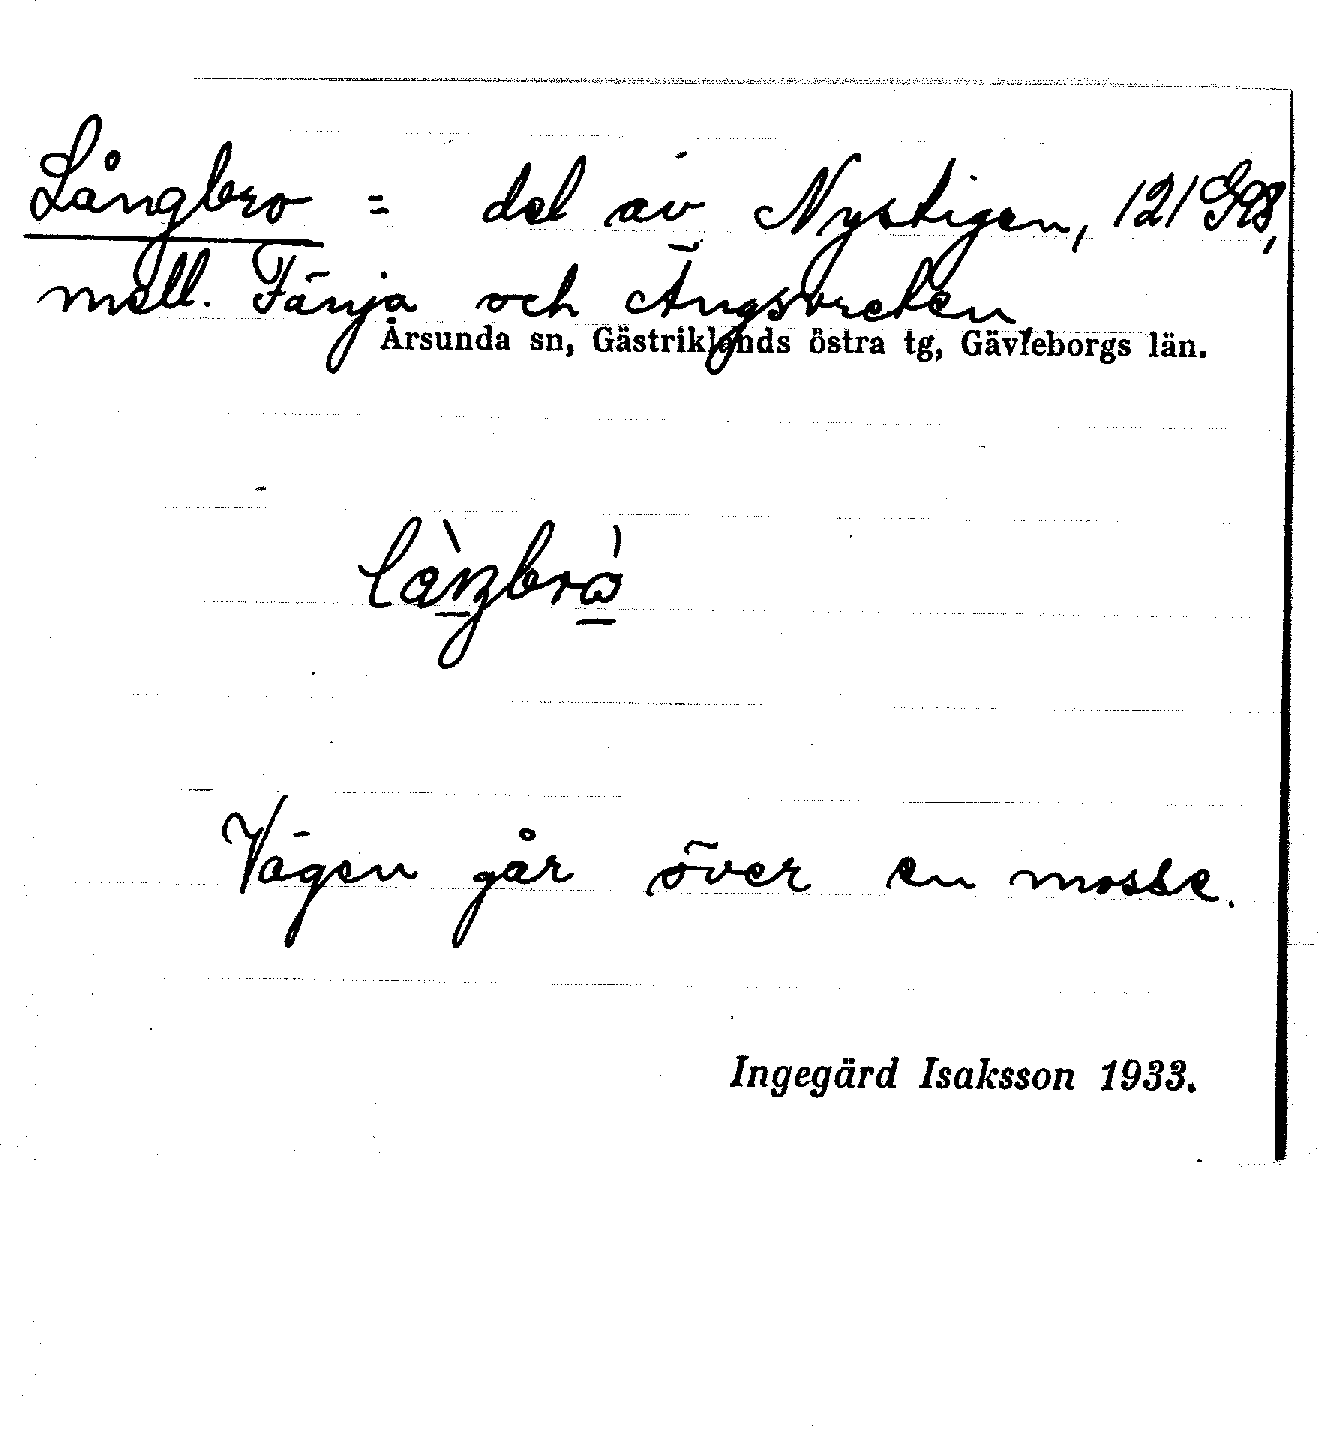 Långbro = del av Nystigen, 121 G98,
mell. Färja och Ängsvreten
Årsunda sn, Gästriklands östra tg, Gävleborgs län.
Vägen går över en mosse.
Ingegärd Isaksson 1933.